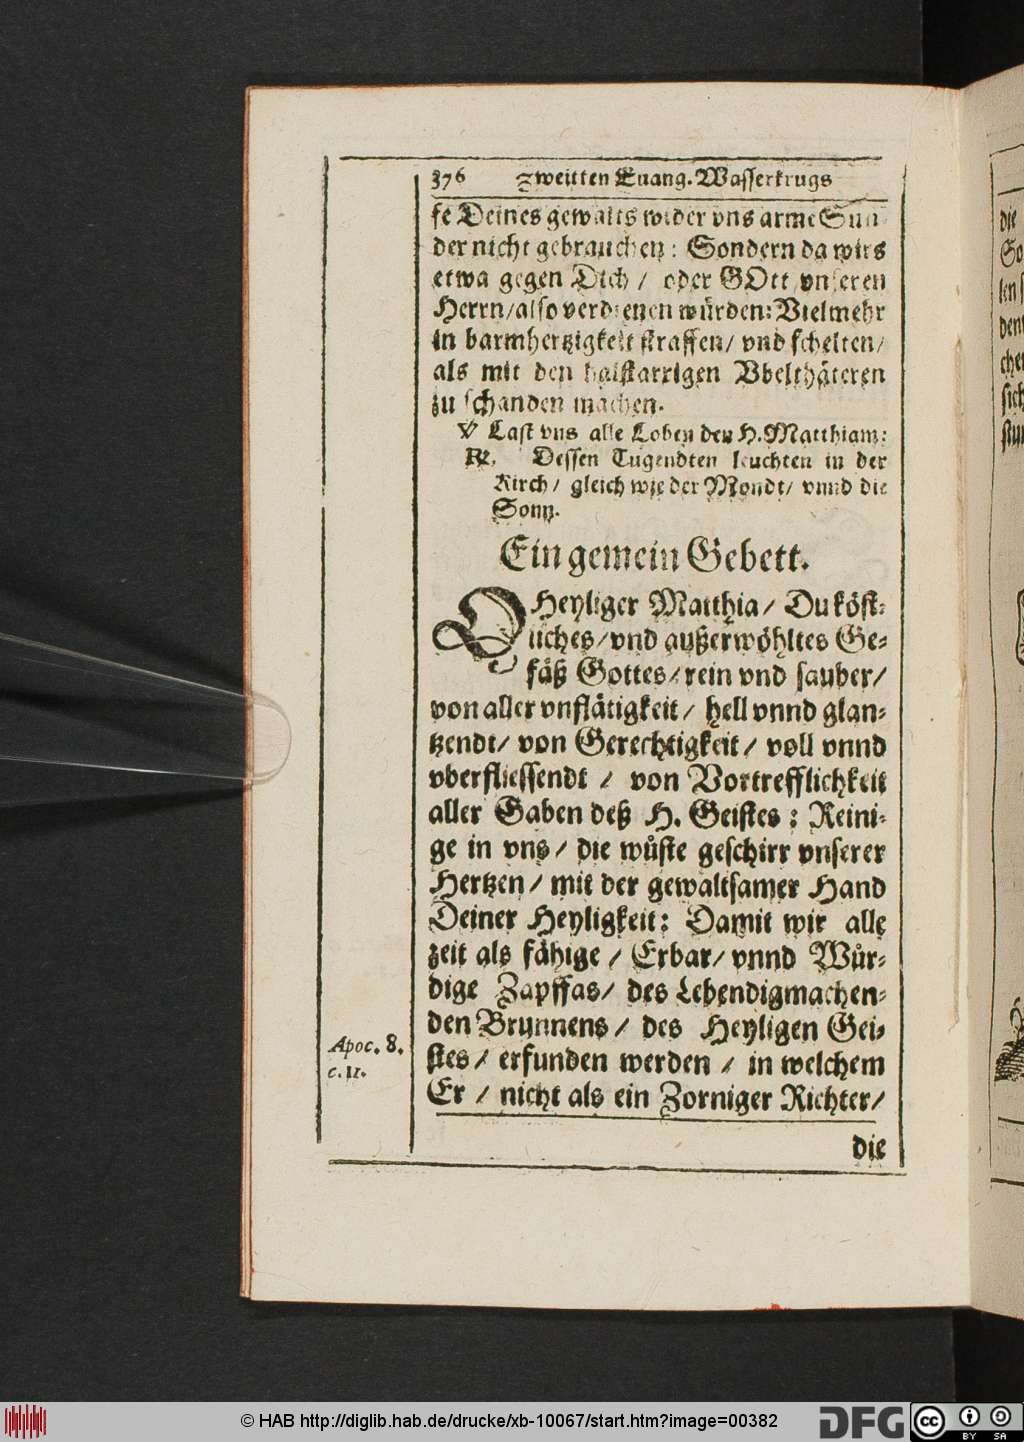 376 Zweitten Euang. Wasserkrugs
fe Deines gewalts wider vns arme Sün-
der nicht gebrauchen: Sondern da wirs
etwa gegen Dich / oder GOtt vnseren
Herrn/also verdienen würden: Vielmehr
in barmhertzigkeit straffen/ vnd schelten/
als mit den halßstarrigen Vbelthäteren
zu schanden machen.
V Last vns alle Loben den H. Matthiam:
R. Dessen Tugendten leuchten in der
Kirch/ gleich wie der Mondt/ vnnd die
Sonn.
Ein gemein Gebett.
O Heyliger Matthia/ Du köst-
liches/vnd außerwöhltes Ge-
fäß Gottes/rein vnd sauber/
von aller vnflätigkeit/ hell vnnd glan-
tzendt/ von Gerechtigkeit/ voll vnnd
vberfliessendt / von Vortrefflichkeit
aller Gaben deß H. Geistes: Reini-
ge in vns/ die wůste geschirr vnserer
Hertzen/ mit der gewaltsamer Hand
Deiner Heyligkeit: Damit wir alle
zeit als fähige / Erbar/ vnnd Wůr-
dige Zapffas/ des Lebendigmachen-
den Brunnens/ des Heyligen Gei-
Apoc. 8.
c. 11.
stes/ erfunden werden / in welchem
Er / nicht als ein Zorniger Richter/
die
die
So
len
den
chen
sich
stun
© HAB http://diglib.hab.de/drucke/xb-10067/start.htm?image=00382
DFG
cc
BY SA